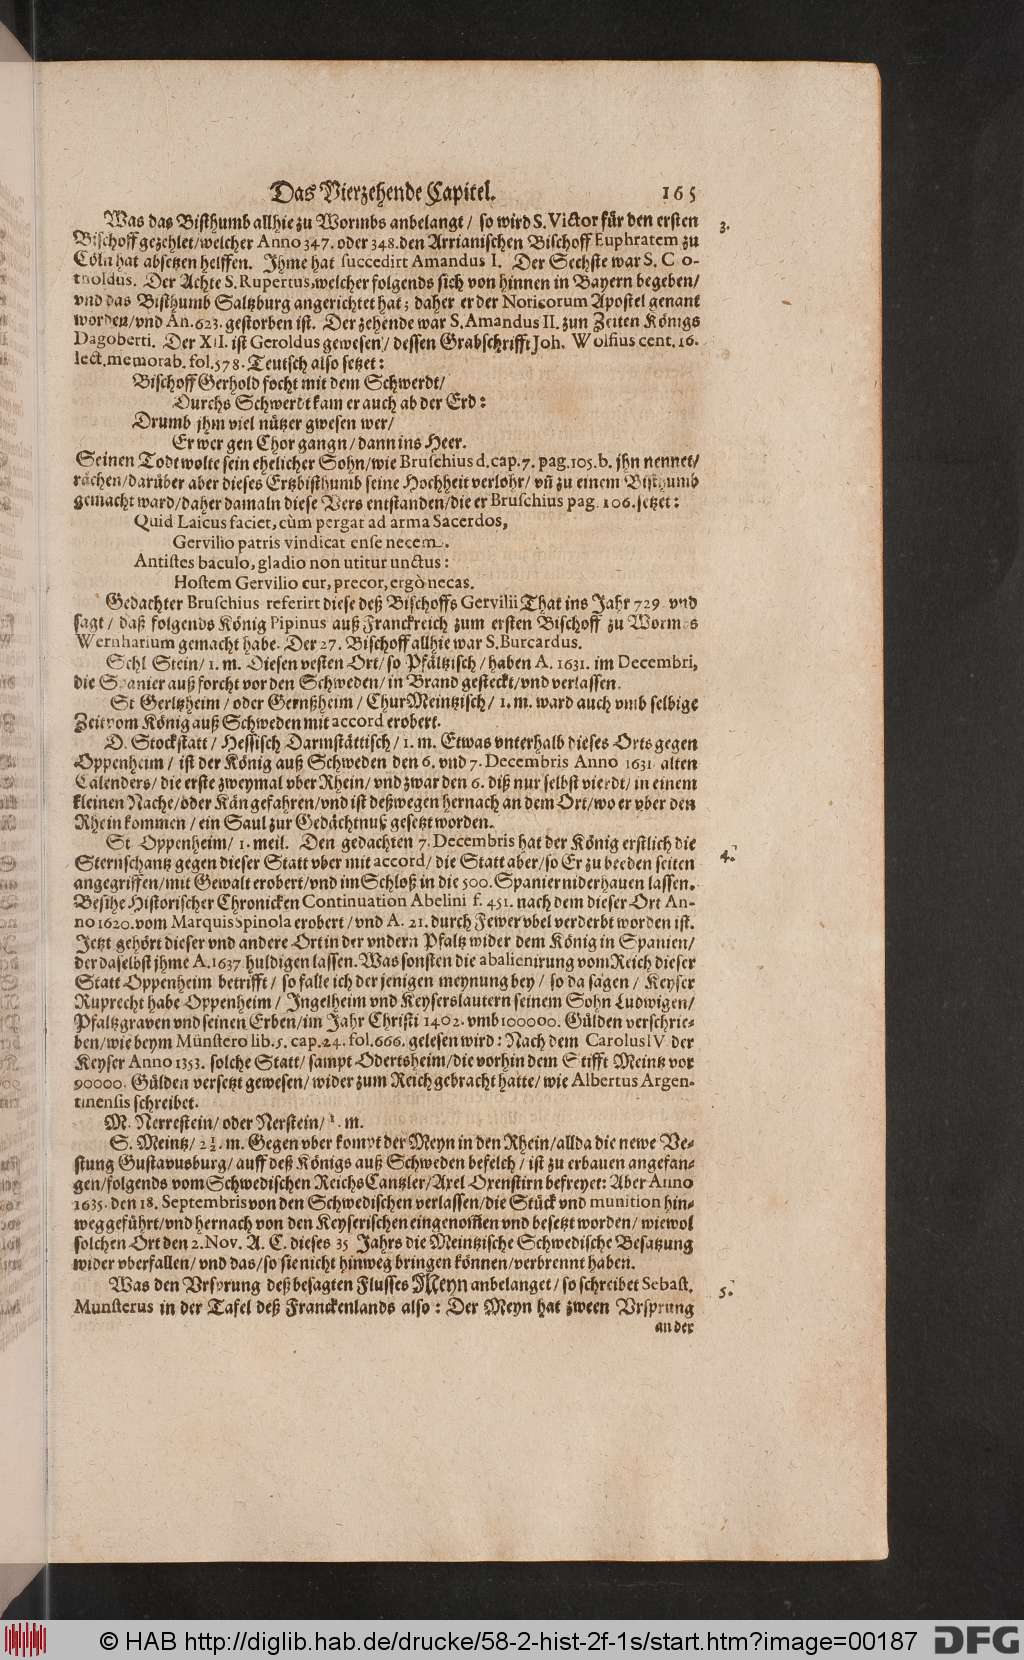 Das Vierzehende Capitel. 165
Was das Bisthumb allhie zu Wormbs anbelangt / so wird S. Victor für den ersten 3.
Bischoff gezehlet/welcher Anno 347. oder 348. den Arrianischen Bischoff Euphratem zu
Cöln hat absetzen helffen. Ihme hat succedirt Amandus I. Der Sechste war S. C o-
tnoldus. Der Achte S. Rupertus, welcher folgends sich von hinnen in Bayern begeben/
vnd das Bisthumb Saltzburg angerichtet hat; daher er der Noricorum Apostel genant
worden/vnd An. 623. gestorben ist. Der zehende war S. Amandus II. zun Zeiten Königs
Dagoberti. Der XII. ist Geroldus gewesen/ dessen Grabschrifft Joh. Wolfius cent. 16.
lect. memorab. fol. 578. Teutsch also setzet:
Bischoff Gerhold focht mit dem Schwerdt/
Durchs Schwerdt kam er auch ab der Erd:
Drumb jhm viel nützer gwesen wer/
Er wer gen Chor gangn/ dann ins Heer.
Seinen Todt wolte sein ehelicher Sohn/wie Bruschius d. cap. 7. pag. 105. b. jhn nennet/
rächen/darüber aber dieses Ertzbisthumb seine Hochheit verlohr/ vñ zu einem Bisthumb
gemacht ward/daher damaln diese Vers entstanden/die er Bruschius pag. 106. setzet:
Quid Laicus faciet, cùm pergat ad arma Sacerdos,
Gervilio patris vindicat ense necem.
Antistes baculo, gladio non utitur unctus:
Hostem Gervilio cur, precor, ergò necas.
Gedachter Bruschius referirt diese deß Bischoffs Gervilii That ins Jahr 729 vnd
sagt/ daß folgends König Pipinus auß Franckreich zum ersten Bischoff zu Wormbs
Wernharium gemacht habe. Der 27. Bischoff allhie war S. Burcardus.
Schl Stein/ 1. m. Diesen vesten Ort/ so Pfältzisch/ haben A. 1631. im Decembri,
die Spanier auß forcht vor den Schweden/ in Brand gesteckt/vnd verlassen.
St Gerltzheim/ oder Gernßheim/ ChurMeintzisch/ 1. m. ward auch vmb selbige
Zeit vom König auß Schweden mit accord erobert.
D. Stockstatt/ Hessisch Darmstättisch/ 1. m. Etwas vnterhalb dieses Orts gegen
Oppenheim/ ist der König auß Schweden den 6. vnd 7. Decembris Anno 1631 alten
Calenders/ die erste zweymal vber Rhein/ vnd zwar den 6. diß nur selbst vierdt/ in einem
kleinen Nache/ oder Kän gefahren/vnd ist deßwegen hernach an dem Ort/wo er vber den
Rhein kommen/ ein Saul zur Gedächtnuß gesetzt worden.
St Oppenheim/ 1. meil. Den gedachten 7. Decembris hat der König erstlich die
Sternschantz gegen dieser Statt vber mit accord/ die Statt aber/so Er zu beeden seiten 4.
angegriffen/mit Gewalt erobert/vnd im Schloß in die 500. Spanier niderhauen lassen.
Besihe Historischer Chronicken Continuation Abelini f. 451. nach dem dieser Ort An-
no 1620. vom Marquis Spinola erobert/ vnd A. 21. durch Fewer vbel verderbt worden ist.
Jetzt gehört dieser vnd andere Ort in der vndern Pfaltz wider dem König in Spanien/
der daselbst jhme A. 1637 huldigen lassen. Was sonsten die abalienirung vom Reich dieser
Statt Oppenheim betrifft/ so falle ich der jenigen meynung bey/ so da sagen/ Keyser
Ruprecht habe Oppenheim/ Ingelheim vnd Keyserslautern seinem Sohn Ludwigen/
Pfaltzgraven vnd seinen Erben/im Jahr Christi 1402. vmb 100000. Gülden verschrie-
ben/ wie beym Münstero lib. 5. cap. 24. fol. 666. gelesen wird: Nach dem Carolus IV. der
Keyser Anno 1353. solche Statt/ sampt Odertsheim/die vorhin dem Stifft Meintz vor
90000. Gülden versetzt gewesen/ wider zum Reich gebracht hatte/ wie Albertus Argen-
tinensis schreibet.
M. Nerrestein/ oder Nerstein/ ½. m.
S. Meintz/ 2½. m. Gegen vber kompt der Meyn in den Rhein/allda die newe Ve-
stung Gustavusburg/ auff deß Königs auß Schweden befelch/ ist zu erbauen angefan-
gen/folgends vom Schwedischen ReichsCantzler/ Axel Oxenstirn befreyet: Aber Anno
1635. den 18. Septembris von den Schwedischen verlassen/die Stück vnd munition hin-
weg geführt/vnd hernach von den Keyserischen eingenom̃en vnd besetzt worden/ wiewol
solchen Ort den 2. Nov. A. C. dieses 35 Jahrs die Meintzische Schwedische Besatzung
wider vberfallen/ vnd das/so sie nicht hinweg bringen können/verbrennt haben.
Was den Vrsprung deß besagten Flusses Meyn anbelanget/ so schreibet Sebast. 5.
Munsterus in der Tafel deß Franckenlands also: Der Meyn hat zween Vrsprung
an der
© HAB http://diglib.hab.de/drucke/58-2-hist-2f-1s/start.htm?image=00187 DFG